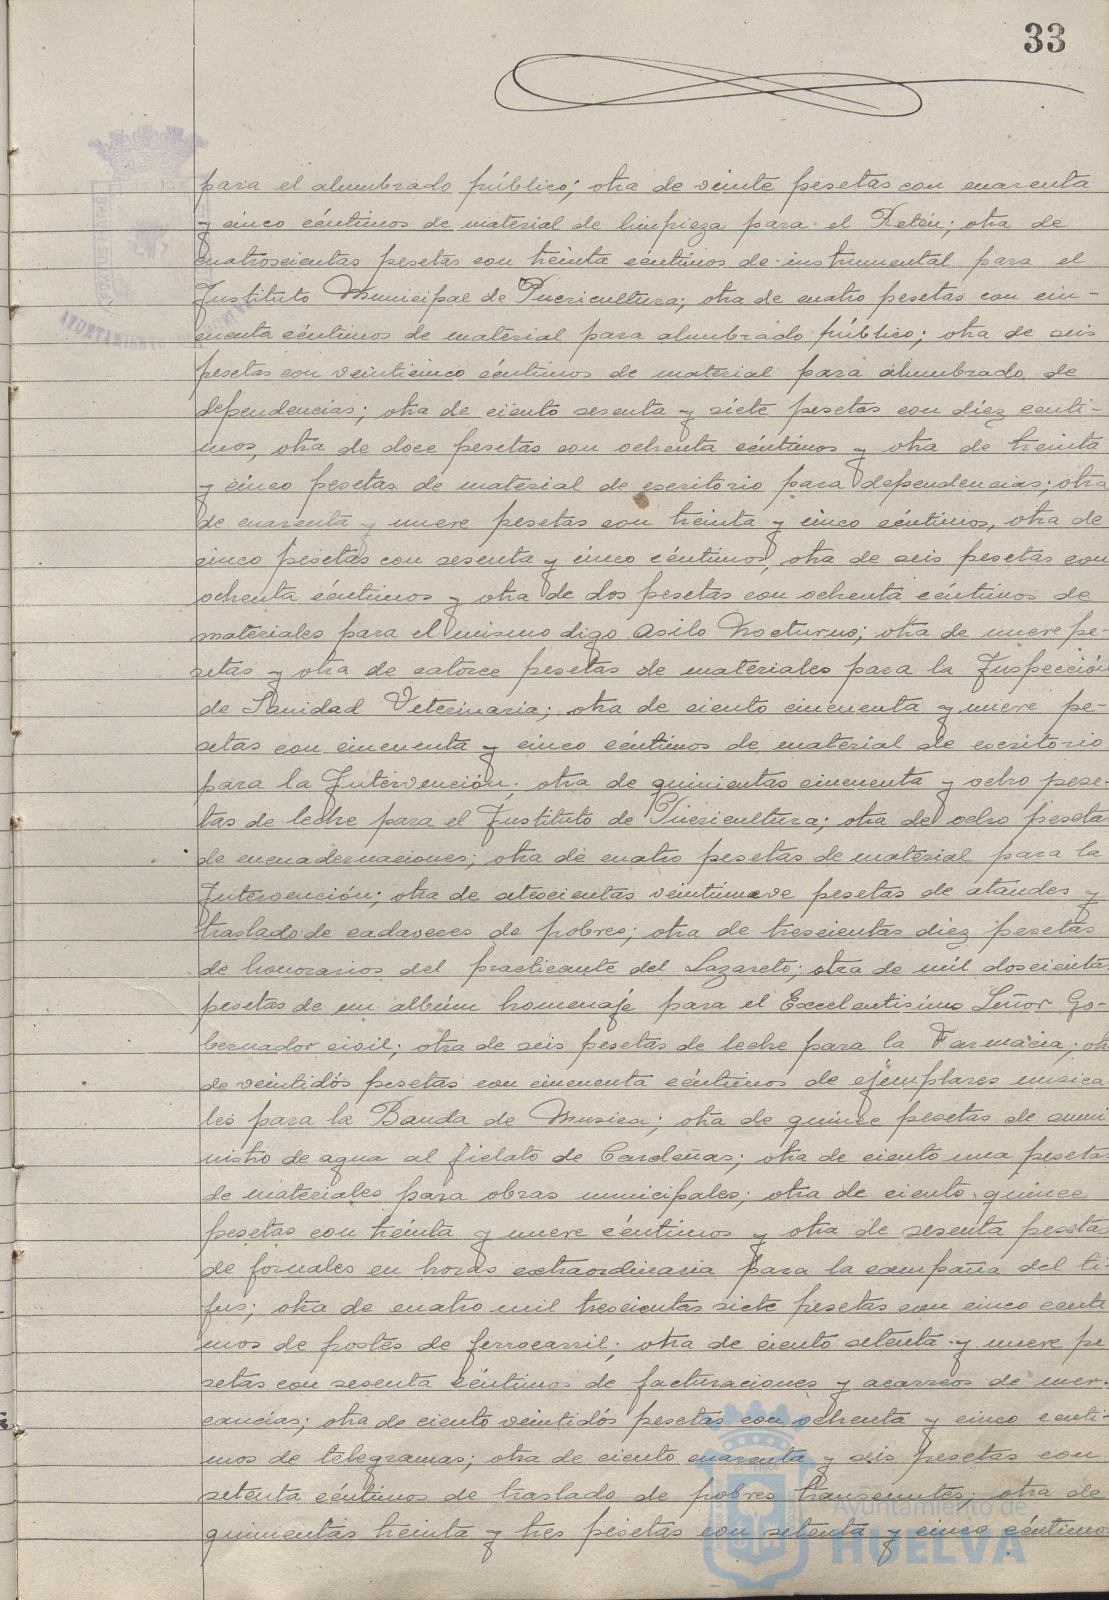 33
para el alumbrado público; otra de veinte pesetas con cuarenta
y cinco céntimos de material de limpieza para el Retén; otra de
cuatroscientas pesetas con treinta céntimos de instrumental para el
Instituto Municipal de Puericultura; otra de cuatro pesetas con cin-
cuenta céntimos de material para alumbrado público; otra de seis
pesetas con veinticinco céntimos de material para alumbrado de
dependencias; otra de ciento sesenta y siete pesetas con diez centi-
mos, otra de doce pesetas con ochenta céntimos y otra de treinta
y cinco pesetas de material de escritorio para dependencias; otra
de cuarenta y nueve pesetas con treinta y cinco céntimos, otra de
cinco pesetas con sesenta y cinco céntimos, otra de seis pesetas con
ochenta céntimos y otra de dos pesetas con ochenta céntimos de
materiales para el mismo digo Asilo Nocturno; otra de nueve pe-
setas y otra de catorce pesetas de materiales para la Inspección
de Sanidad Veterinaria; otra de ciento cincuenta y nueve pe-
setas con cincuenta y cinco céntimos de material de escritorio
para la Intervención; otra de quinientas cincuenta y ocho pese-
tas de leche para el Instituto de Puericultura; otra de ocho pesetas
de encuadernaciones; otra de cuatro pesetas de material para la
Intervención; otra de setescientas veintinueve pesetas de ataudes y
traslado de cadaveres de pobres; otra de trescientas diez pesetas
de honorarios del practicante del Lazareto; otra de mil doscientas
pesetas de un albúm homenaje para el Excelentisimo Señor Go-
bernador civil; otra de seis pesetas de leche para la Farmacia; otra
de veintidós pesetas con cincuenta céntimos de ejemplares musica
les para la Banda de Musica; otra de quince pesetas de sumi
nistro de agua al fielato de Cardeñas; otra de ciento una pesetas
de materiales para obras municipales; otra de ciento quince
pesetas con treinta y nueve céntimos y otra de sesenta pesetas
de jornales en horas extraordinaria para la campaña del ti-
fus; otra de cuatro mil trescientas siete pesetas con cinco centi
mos de postes de ferrocarril; otra de ciento setenta y nueve pe
setas con sesenta céntimos de facturaciones y acarreos de mer-
cancías; otra de ciento veintidós pesetas con ochenta y cinco centi-
mos de telegramas; otra de ciento cuarenta y seis pesetas con
setenta céntimos de traslado de pobres transeuntes; otra de
quinientas treinta y tres pesetas con setenta y cinco céntimos
Ayuntamiento de
HUELVA